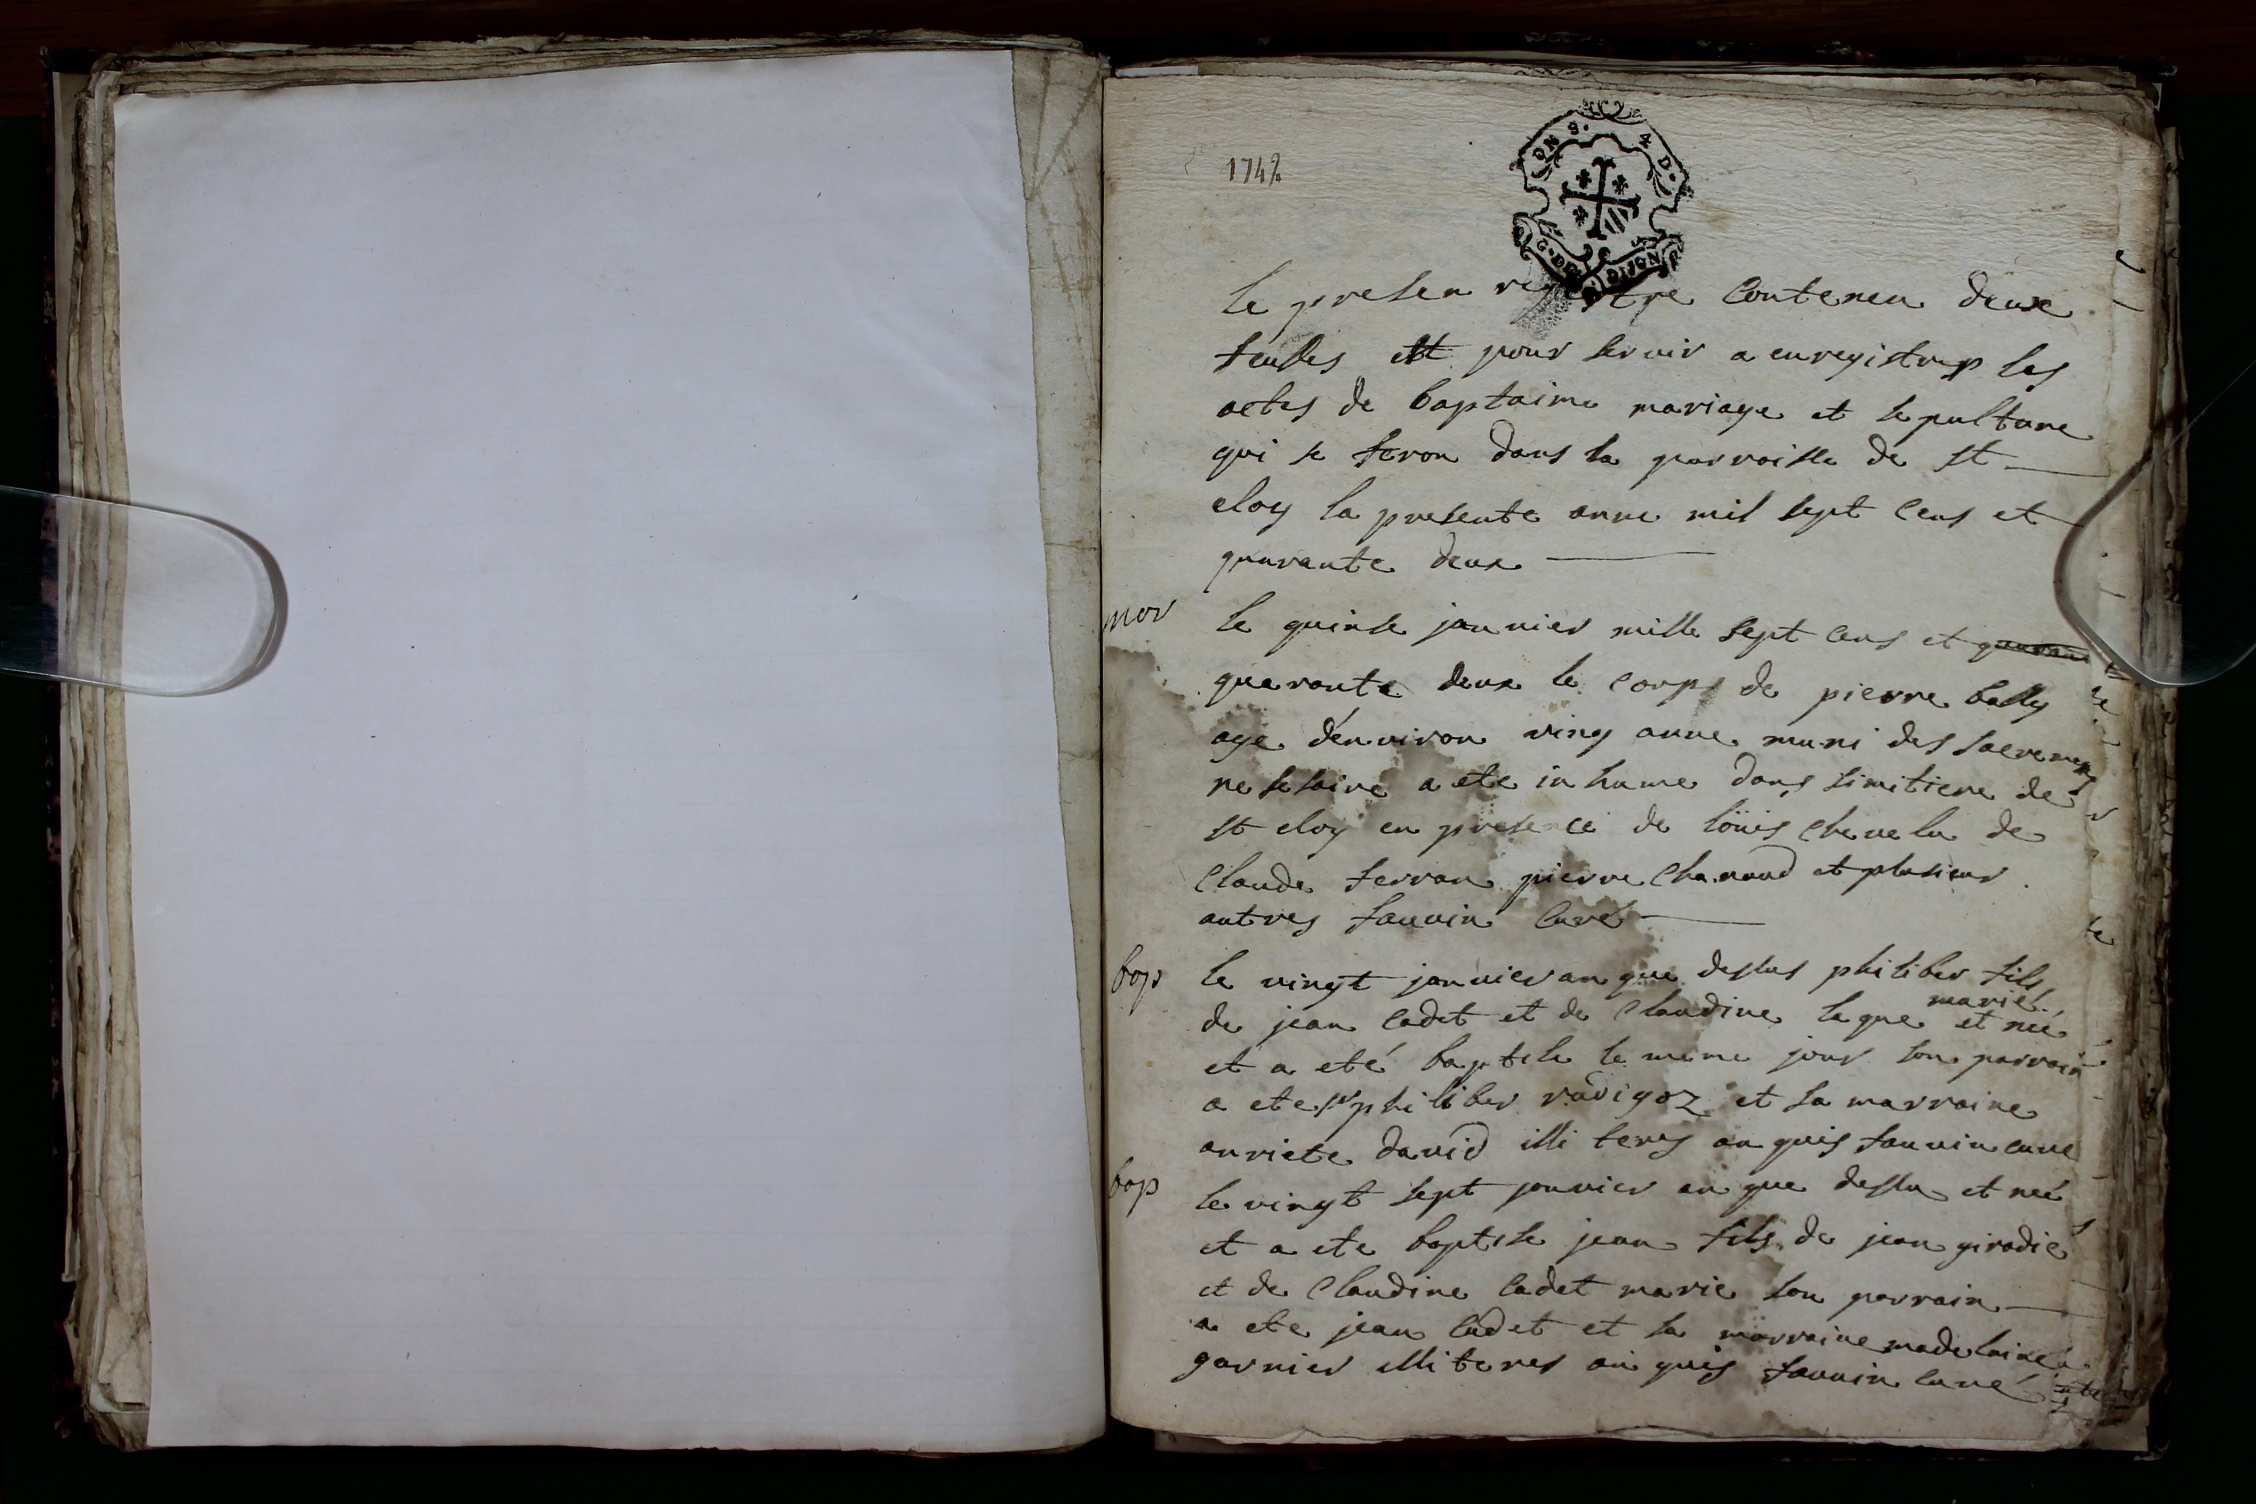 1742
ON 9. 4 D.
G. DE DIJON
le presen registre Contenen deux
feulles est pour servir a enregistrer les
actes de baptaime mariage et sepulture
qui se feron dans la parroisse de st
eloy la presente anne mil sept Cens et
quarante deux
mor
le quinse janvier mille sept cens et
quarante deux le corps de pierre bally
age d'environ ving anne muni des sacremens
nessesaire a ete inhume dans simitiere de
st eloy en presence de loüis Chevelu de
Claude ferran pierre Chanaud et plusieur
autres fauvin Curé
bap
le vingt janvier an que dessus philiber fils
de jean Cadet et de Claudine leque mariés et neé
et a eté baptise le meme jour son parrain
a ete sr philiber radigoz et sa marraine
anriete david illiteres an quis fauvin cure
bap
le vingt sept janvier an que dessu et neé
et a ete baptise jean fils de jean giradié
et de Claudine Cadet marie son parrain
a ete jean Cadet et sa marraine madelaine
garnier illiteres an quis fauvin curé